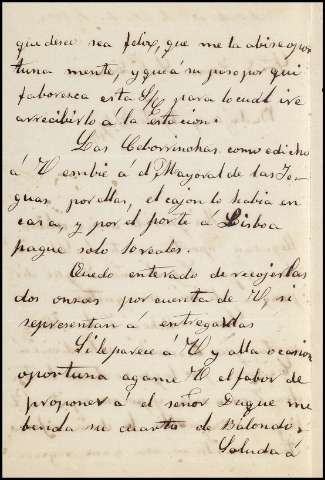 que deseo sea felix, que me la abise opor-
tuna mente, y que á su paso por qui
faboresca esta S/C para lo cual ire
arrecibirlo á la Estacion.
Las Ceborrinchas como edicho
á V embié á d. Mayoral de las Ye-
guas por ellas, el cajon lo habia en
casa, y por el porte á Lisboa
pague solo 10 reales.
Quedo enterado de recojer las
dos onsas por cuenta de V, si
se presentan á entregarlas
Si le parece á V y alla ocasion
oportuna agame V el fabor de
proponer á el señor Duque me
benda su cuarto de Balondo
Saluda á